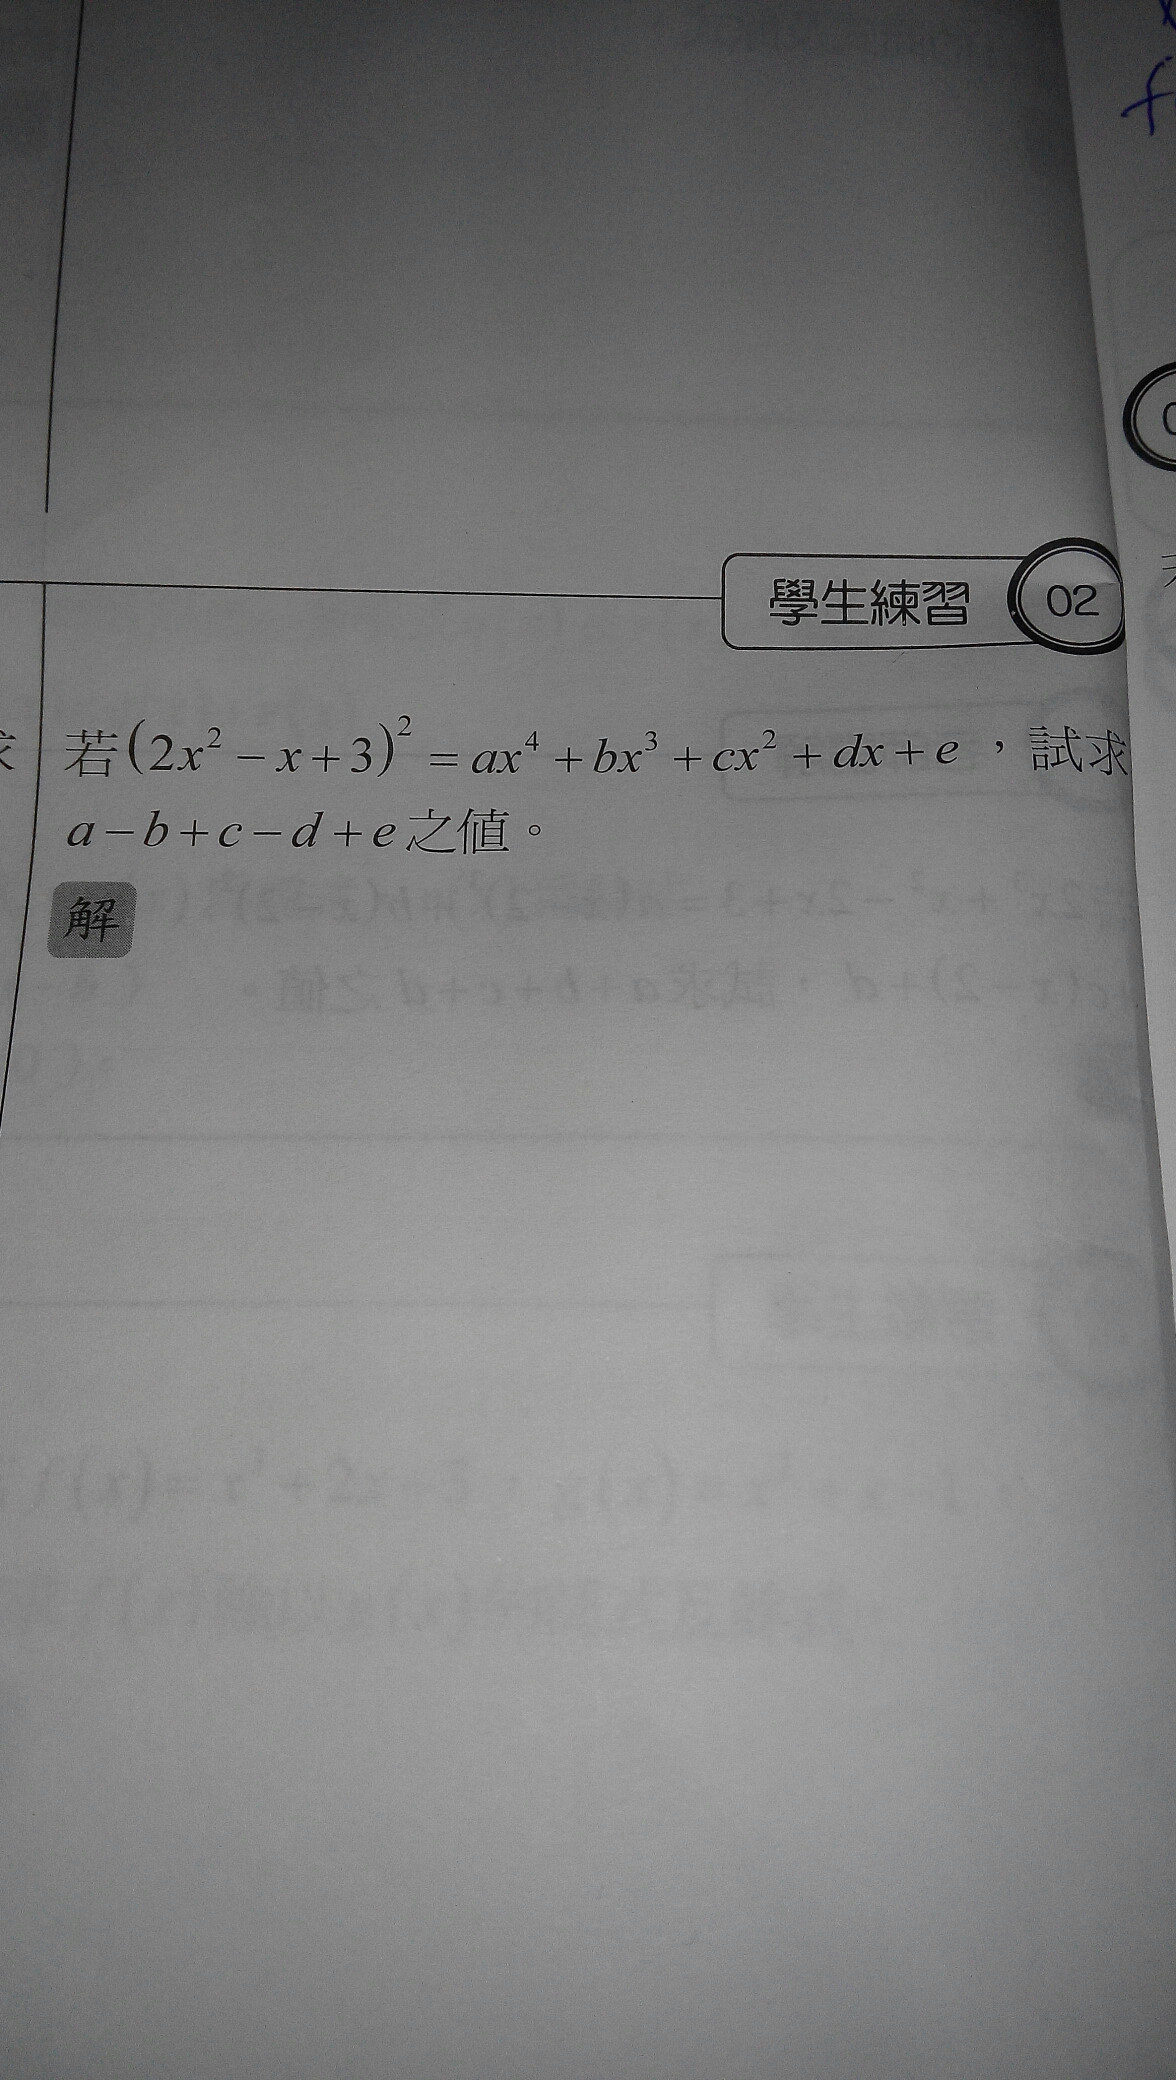 學生練習 02
若(2x² − x + 3)² = ax⁴ + bx³ + cx² + dx + e ，試求
a − b + c − d + e 之值。
解